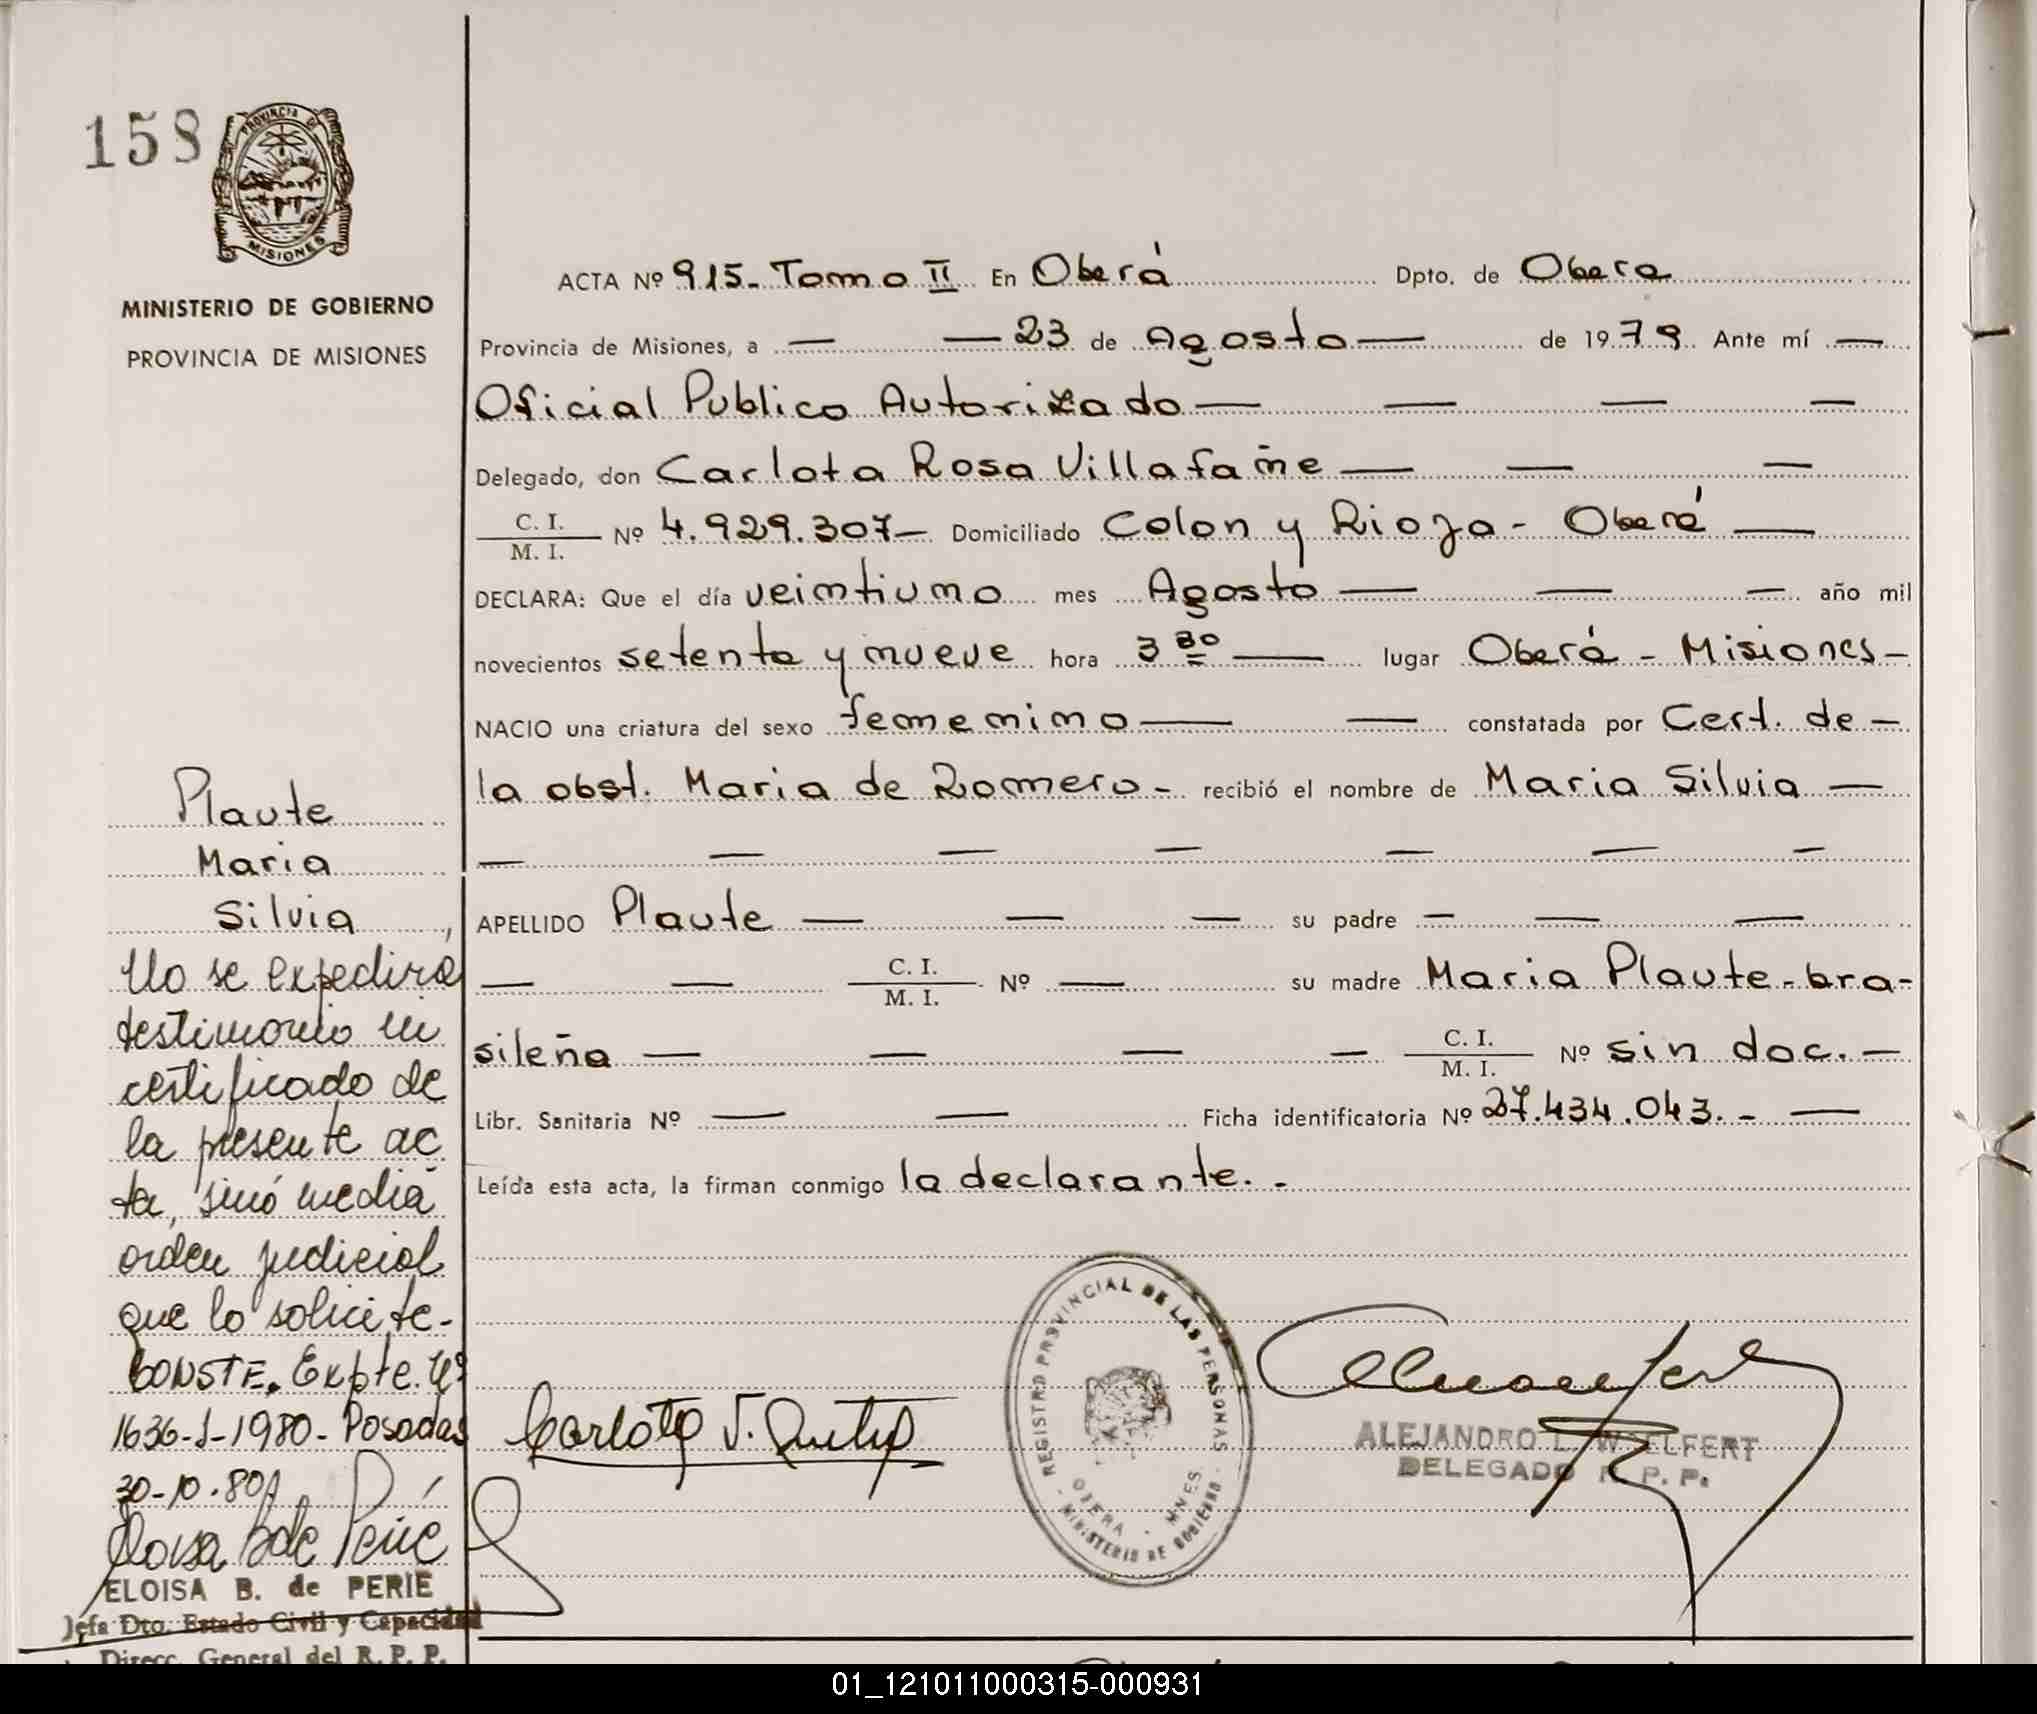 158
PROVINCIA DE
MISIONES
MINISTERIO DE GOBIERNO
PROVINCIA DE MISIONES
ACTA Nº 915. Tomo II En Oberá Dpto. de Obera
Provincia de Misiones, a — — 23 de Agosto — de 1979 Ante mí —
Oficial Publico Autorizado — — — —
Delegado, don Carlota Rosa Villafañe — — —
C. I.
M. I. Nº 4.929.307 — Domiciliado Colon y Rioja - Oberá —
DECLARA: Que el día veintiuno mes Agosto — — — año mil
novecientos setenta y nueve hora 3 30 — lugar Oberá - Misiones -
NACIO una criatura del sexo femenino — — constatada por Cert. de -
la obst. Maria de Romero - recibió el nombre de Maria Silvia —
— — — — — — —
APELLIDO Plaute — — — su padre — — —
— — C. I.
M. I. Nº — su madre Maria Plaute - bra-
sileña — — — — C. I.
M. I. Nº sin doc. -
Libr. Sanitaria Nº — — Ficha identificatoria Nº 27.434.043. - —
Leída esta acta, la firman conmigo la declarante. -
Plaute
Maria
Silvia
No se expedirá
testimonio ni
certificado de
la presente ac
ta, sinó media
orden judicial
que lo solicite-
CONSTE. Expte. Nº
1636-J-1980- Posadas
30-10-80
REGISTRO PROVINCIAL DE LAS PERSONAS
OBERA - MNES.
MINISTERIO DE GOBIERNO
ALEJANDRO L. WOELFERT
DELEGADO R. P. P.
ELOISA B. de PERIE
Jefa Dto. Estado Civil y Capacidad
Direcc. General del R. P. P.
01_121011000315-000931